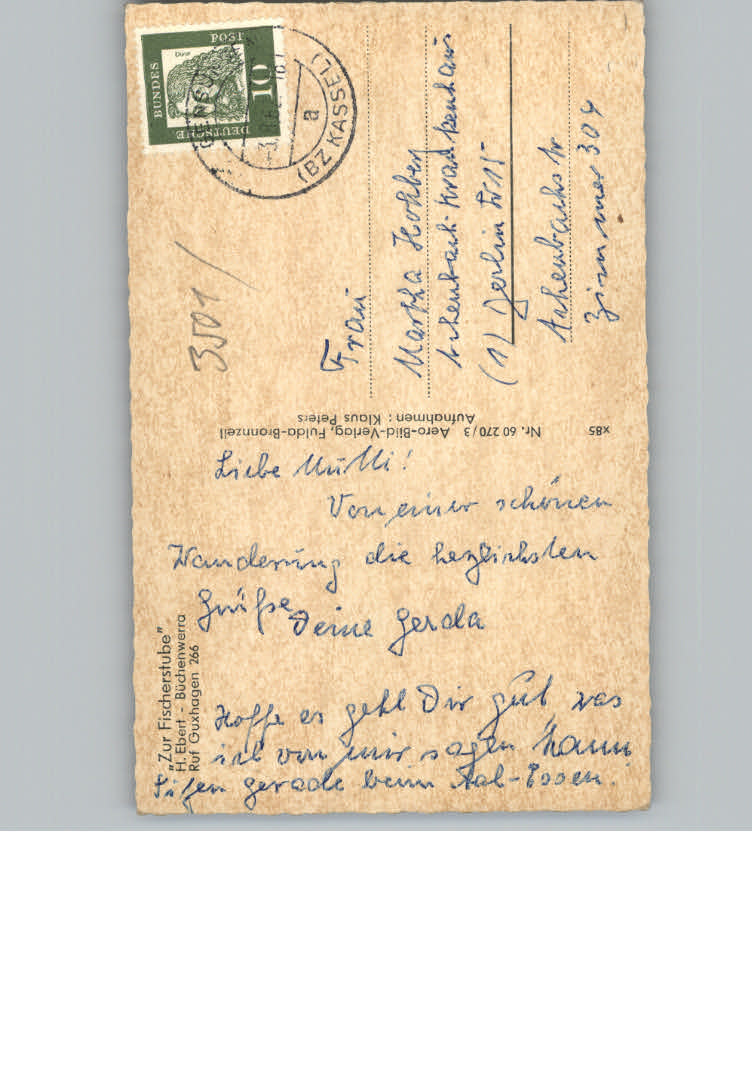 DEUTSCHE
BUNDES
POST
10
Dürer
(BZ KASSEL)
a
3501
Frau
Martha
(1) Berlin
Achenbachstr
Zimmer 304
x85
Nr. 60 270/3 Aero-Bild-Verlag, Fulda-Bronnzell
Aufnahmen: Klaus Peters
Liebe Mutti!
Von einer schönen
Wanderung die herzlichsten
Grüße Deine Gerda
Hoffe es geht Dir gut was
ich von mir sagen kann
Sitzen gerade beim Aal-Essen.
„Zur Fischerstube"
H. Ebert - Büchenwerra
Ruf Guxhagen 266